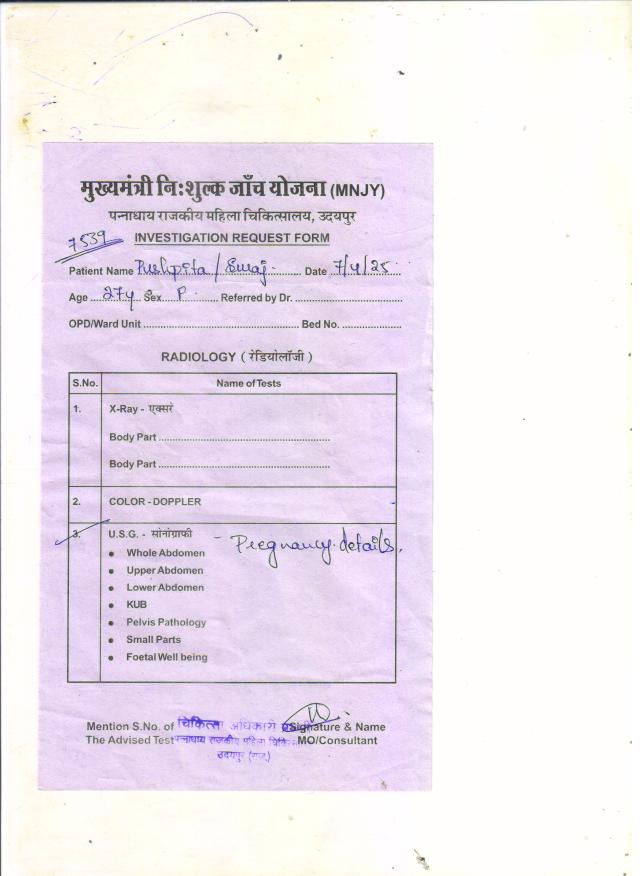 मुख्यमंत्री निःशुल्क जाँच योजना (MNJY)
पन्नाधाय राजकीय महिला चिकित्सालय, उदयपुर
7539
INVESTIGATION REQUEST FORM
Patient Name Pushpita / Suraj Date 7/4/25
Age 27y Sex F Referred by Dr.
OPD/Ward Unit Bed No.
RADIOLOGY ( रेडियोलॉजी )
S.No. Name of Tests
1. X-Ray - एक्सरे
Body Part
Body Part
2. COLOR - DOPPLER
3. U.S.G. - सोनोग्राफी - Pregnancy details.
• Whole Abdomen
• Upper Abdomen
• Lower Abdomen
• KUB
• Pelvis Pathology
• Small Parts
• Foetal Well being
Mention S.No. of चिकित्सा अधिकारी Signature & Name
The Advised Test पन्नाधाय राजकीय महिला MO/Consultant
उदयपुर (राज.)